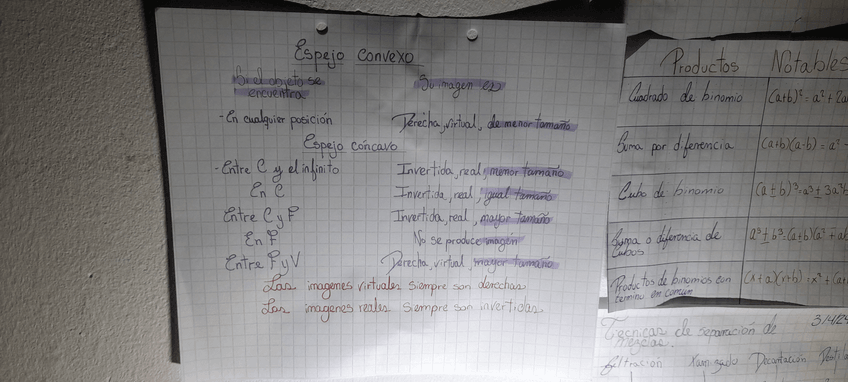 Espejo convexo
Si el objeto se
encuentra
Su imagen es
-En cualquier posición
Derecha, virtual, de menor tamaño
Espejo cóncavo
-Entre C y el infinito
Invertida, real, menor tamaño
En C
Invertida, real, igual tamaño
Entre C y F
Invertida, real, mayor tamaño
En F
No se produce imagén
Entre F y V
Derecha, virtual, mayor tamaño
Las imagenes virtuales siempre son derechas
Las imagenes reales siempre son invertidas.
Productos Notables
Cuadrado de binomio
(a+b)²=a²+2a
Suma por diferencia
(a+b)(a-b)=a²-
Cubo de binomio
(a±b)³=a³±3a²
Suma o diferencia de
Cubos
a³±b³=(a±b)(a²
Productos de binomios con
termino en común
(x+a)(x+b)=x²+(a+
3/4/24
Tecnicas de separación de
mezclas.
filtración Tamizado Decantación Destila